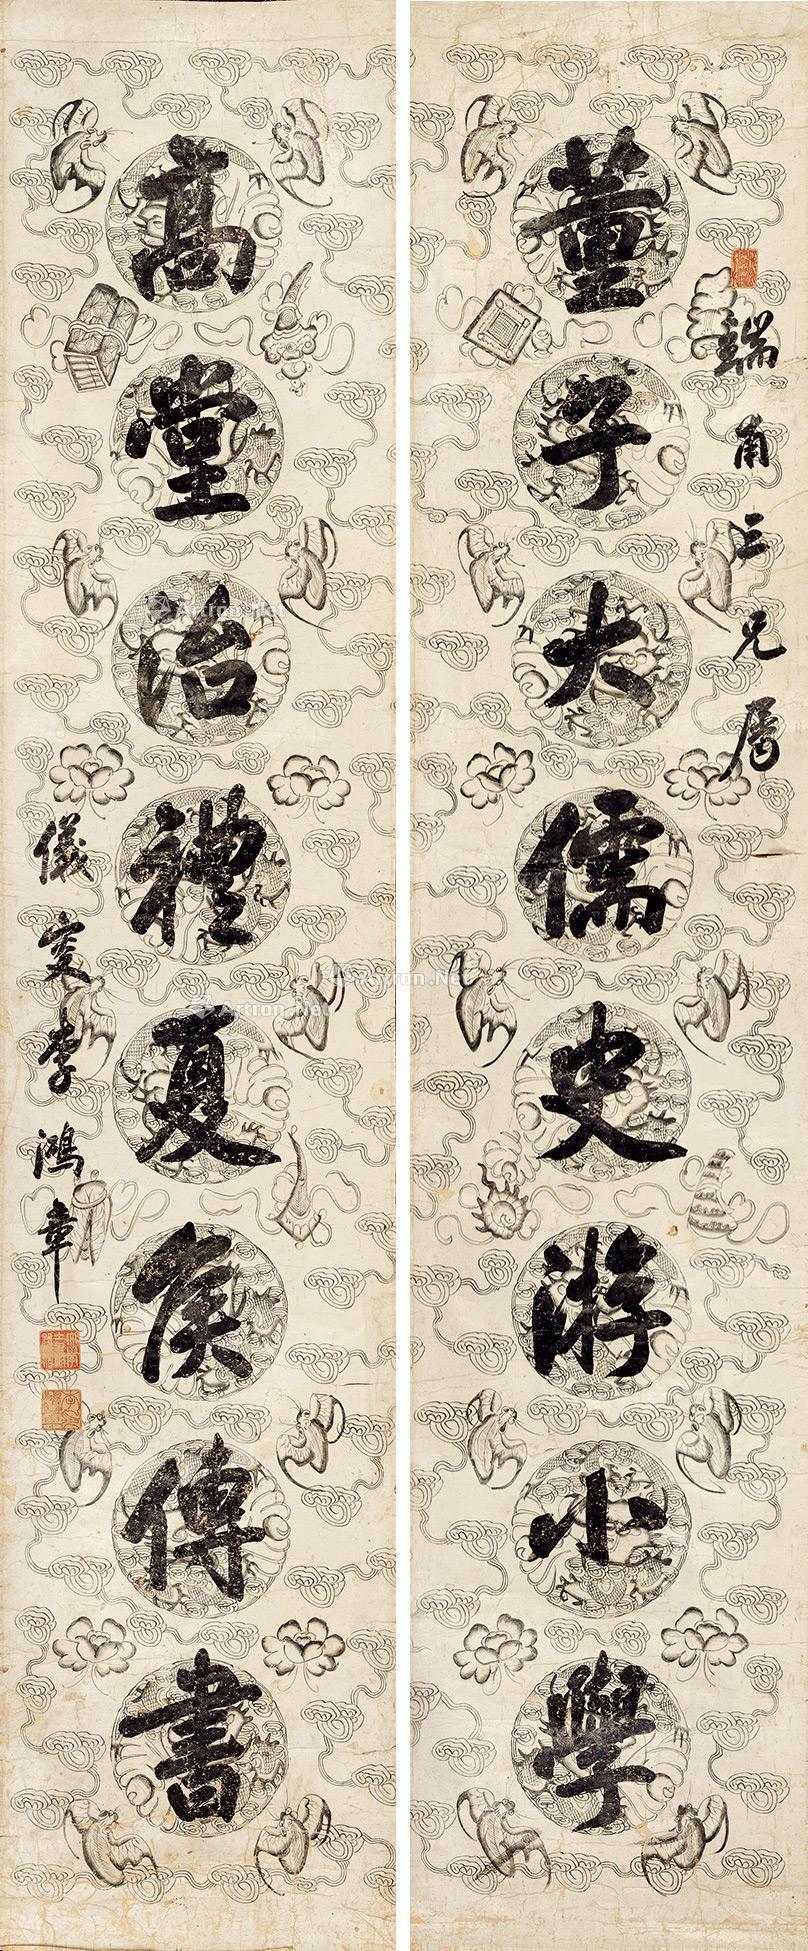 董子大儒史游小學
端甫三兄屬
高堂治禮夏侯傳書
儀叟李鴻章
Artron.Net
Artron.Net
Artron.Net